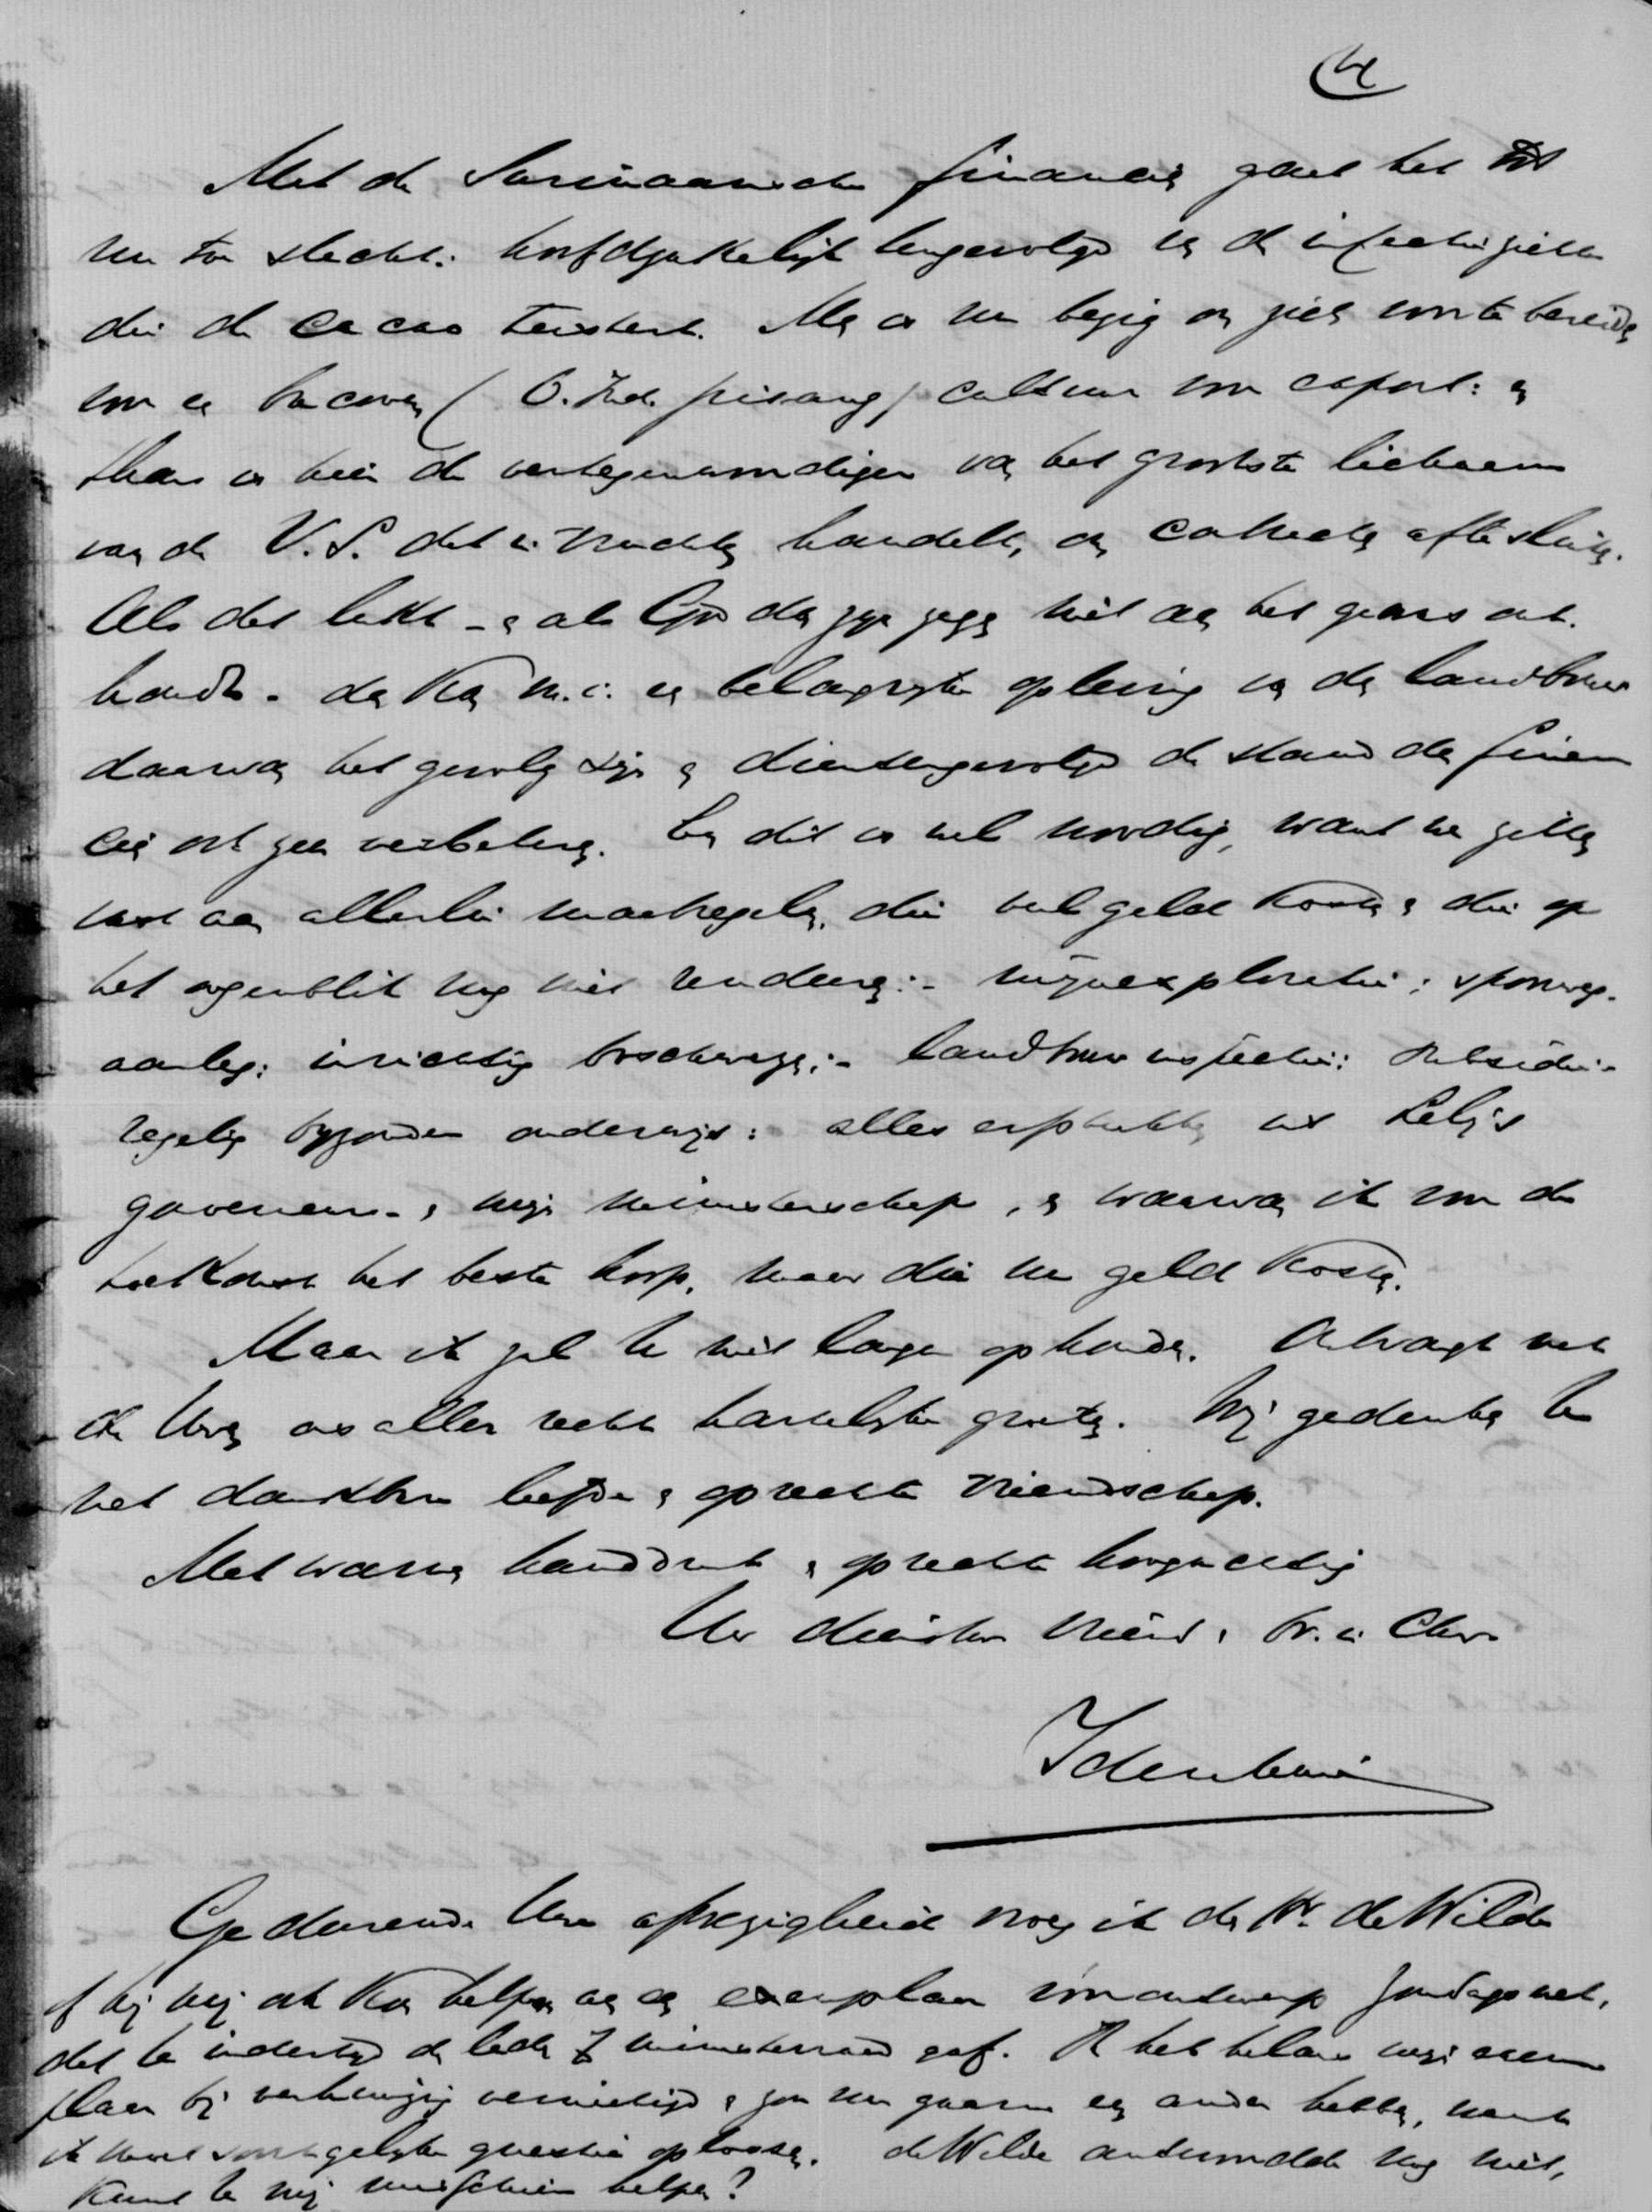 4
Met de Surinaamsche financiën gaat het tot
nu toe slecht: hoofdzakelijk tengevolge v. de infectieziekte
die de cacao teistert. Men is nu bezig om zich voor te bereiden
voor een bacoven (O. Ind. pisang) cultuur voor export: en
thans is hier de vertegenwoordiger van het grootste lichaam
van de V.S. dat in vruchten handelt, om contracten af te sluiten.
Als dat lukt - en als God den zegen niet aan het gewas ont-
houdt - dan kan m.i. een belangrijke opleving van den landbouw
daarvan het gevolg zijn en dientengevolge de stand der finan-
ciën ook zeer verbeteren. En dit is wel noodig, want we zitten
vast aan allerlei maatregelen, die veel geld kosten en die op
het oogenblik nog niet rendeeren:- mijnexploratie; spoorweg-
aanleg: inrichting boschwezen;- landbouwinspectie: subsidie-
regeling bijzonder onderwijs: alles uit Lely's
gouverneur- en mijn ministerschap, en waarvan ik voor de
toekomst het beste hoop, maar die nu geld kosten.
Maar ik zal U niet langer ophouden. Ontvangt met
de Uwen ons aller recht hartelijke groeten. Wij gedenken U
met dankbare liefde en oprechte vriendschap.
Met warme handdruk en oprechte hoogachting
Uw dienstw. vriend en br. in Chr.
Idenburg
Gedurende Uwe afwezigheid vroeg ik den Hr. de Wilde
of hij mij ook kon helpen aan een exemplaar voorontwerp Zondagswet,
dat U indertijd de leden v. ministerraad gaf. Ik heb helaas mijn exem-
plaar bij verhuizing vernietigd en zou nu gaarne een ander hebben, want
ik moet soortgelijke questie oplossen. de Wilde antwoordde nog niet,
Kunt U mij misschien helpen?